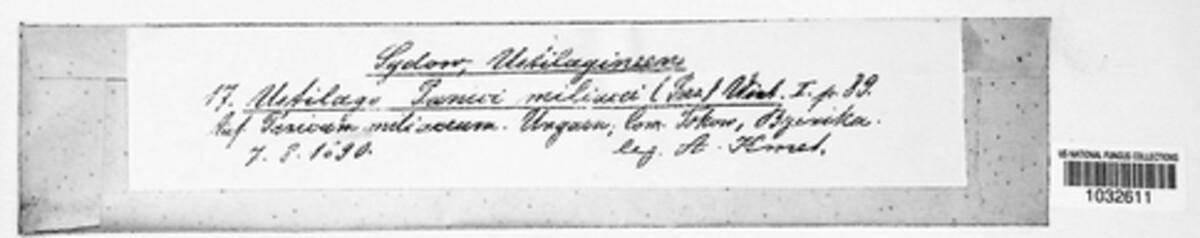 Sydow, Ustilagineen
17. Ustilago Panici miliacei (Pers) Wint. I. p. 89.
Auf Panicum miliaceum. Ungarn, Com.
7. 8. 1890. leg. A. Kmet.
US NATIONAL FUNGUS COLLECTIONS
1032611